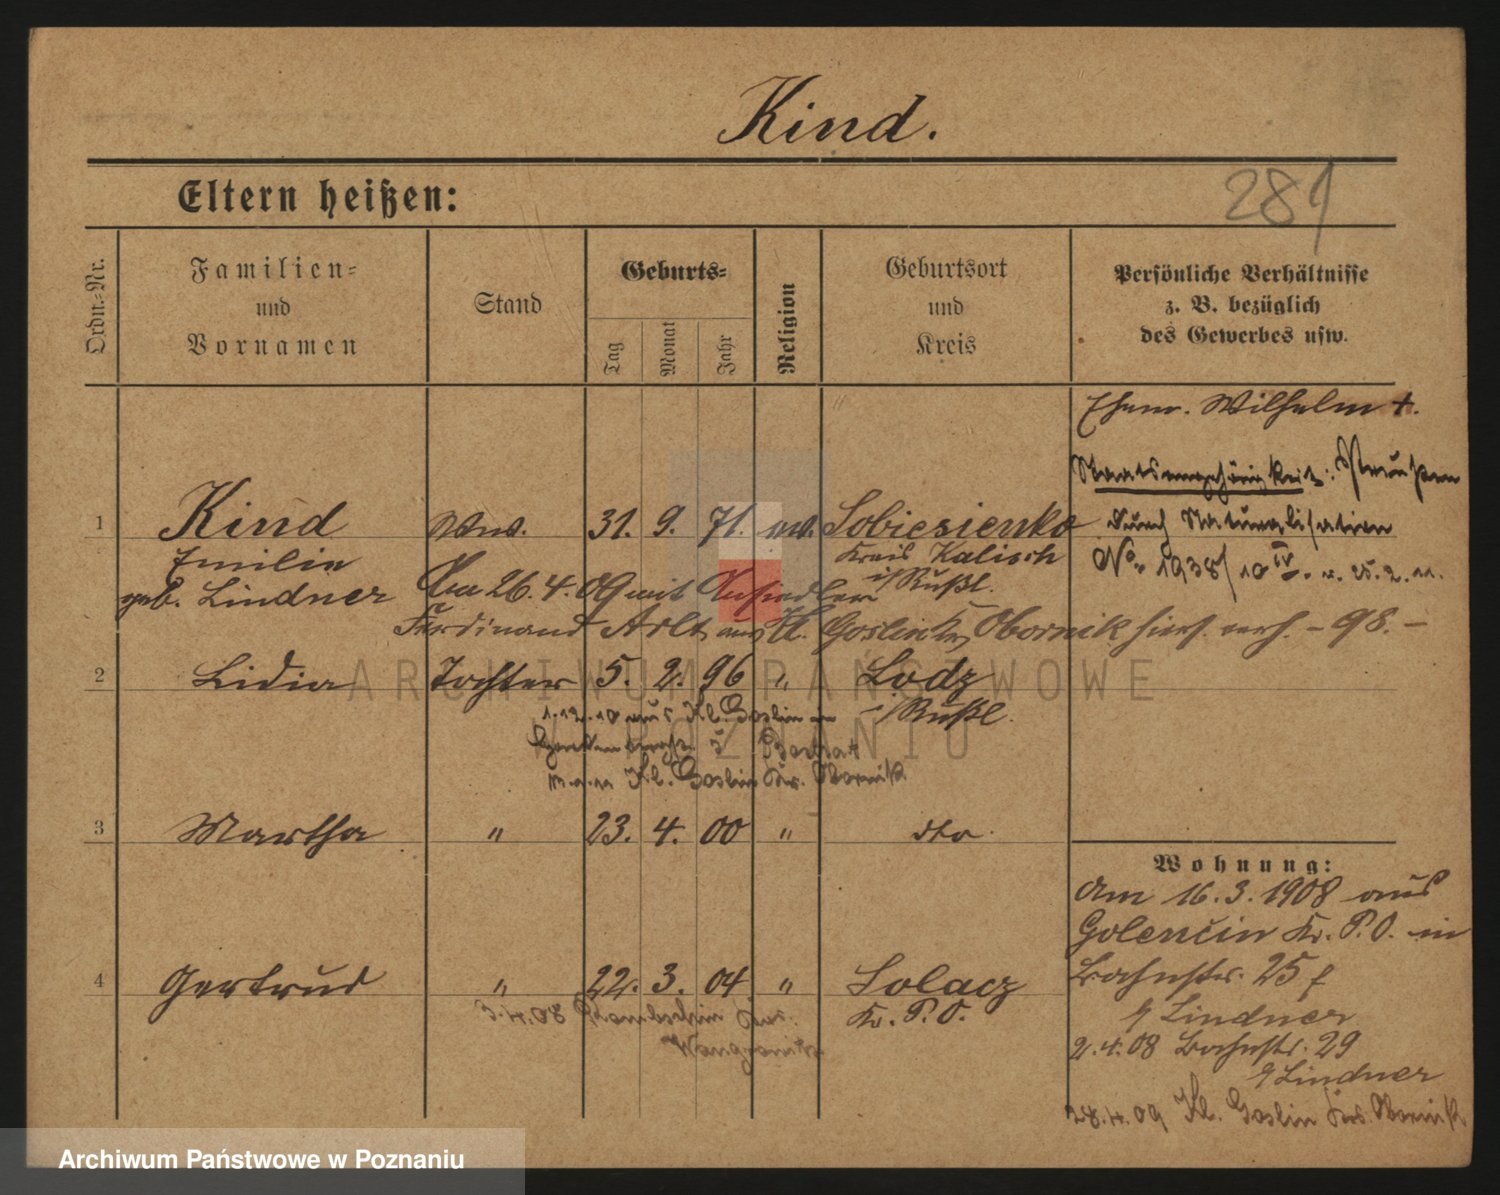 Kind.
Eltern heißen:
281
Ordn.-Nr.
Familien-
und
Vornamen
Stand
Geburts-
Tag
Monat
Jahr
Religion
Geburtsort
und
Kreis
Persönliche Verhältnisse
z. B. bezüglich
des Gewerbes usw.
Ehem. Wilhelm †.
Staatsangehörigkeit: Preußen
durch Naturalisation
No. 1938/10 IV v. 25.2.11.
1 Kind Wwe. 31. 9. 71. ev. Sobiesienko
Emilie Kreis Kalisch
geb. Lindner i/Rußl.
Am 26.4.09 mit Ansiedler
Ferdinand Arlt aus Kl. Goslin Kr. Obornik hier verh. - 98. -
2 Lidia Tochter 5. 2. 96 " Lodz
i/Rußl.
1.12.10 aus Kl. Goslin
Gartenstraße 5
Kl. Goslin Kr. Obornik
3 Martha " 23. 4. 00 " dto.
Wohnung:
Am 16.3.1908 aus
Golencin Kr. P.O. in
Bahnstr. 25 f
b/ Lindner
2.4.08 Bahnstr. 29
b/ Lindner
28.4.09 Kl. Goslin Krs. Obornik
4 Gertrud " 22. 3. 04 " Solacz
Kr. P.O.
3.4.08 Krs.
Wongrowitz
ARCHIWUM PAŃSTWOWE
W POZNANIU
Archiwum Państwowe w Poznaniu